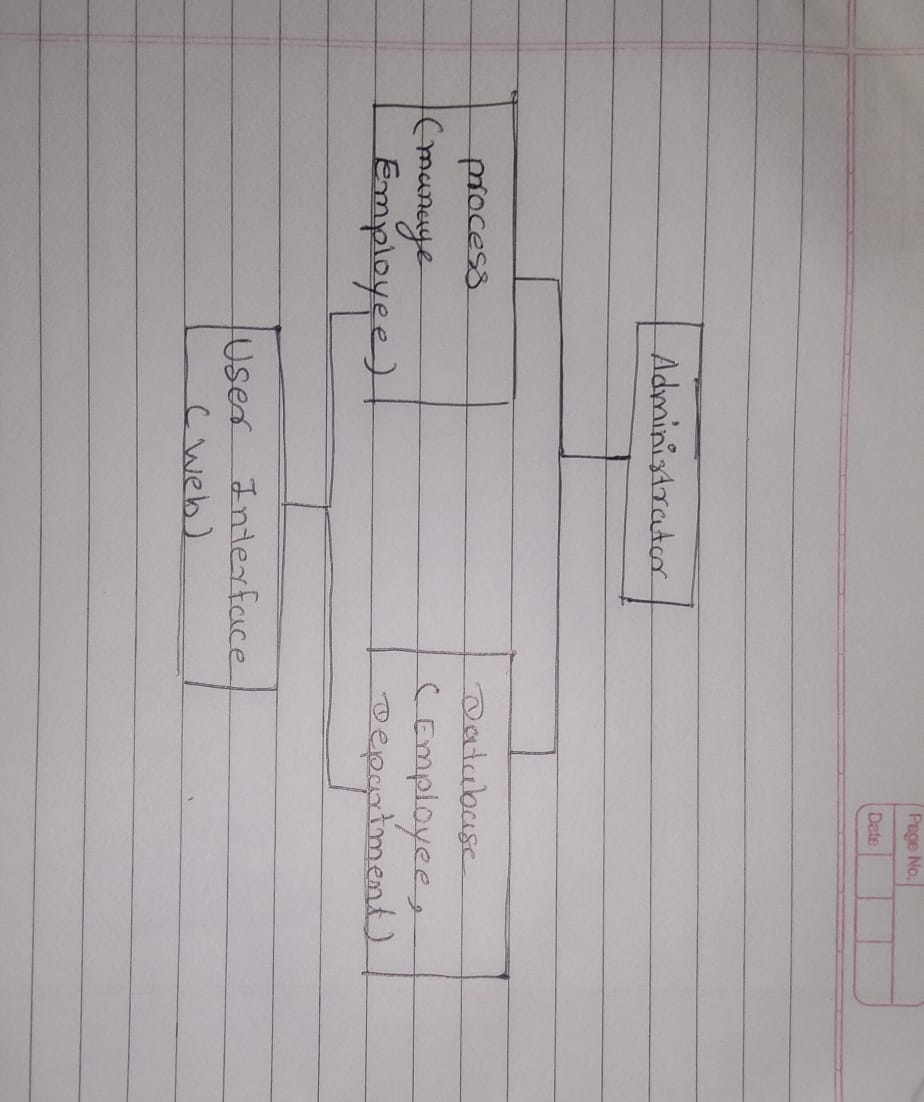 Page No.
Date
Administrator
process
(manage
Employee)
Database
(Employee,
Department)
User Interface
(Web)